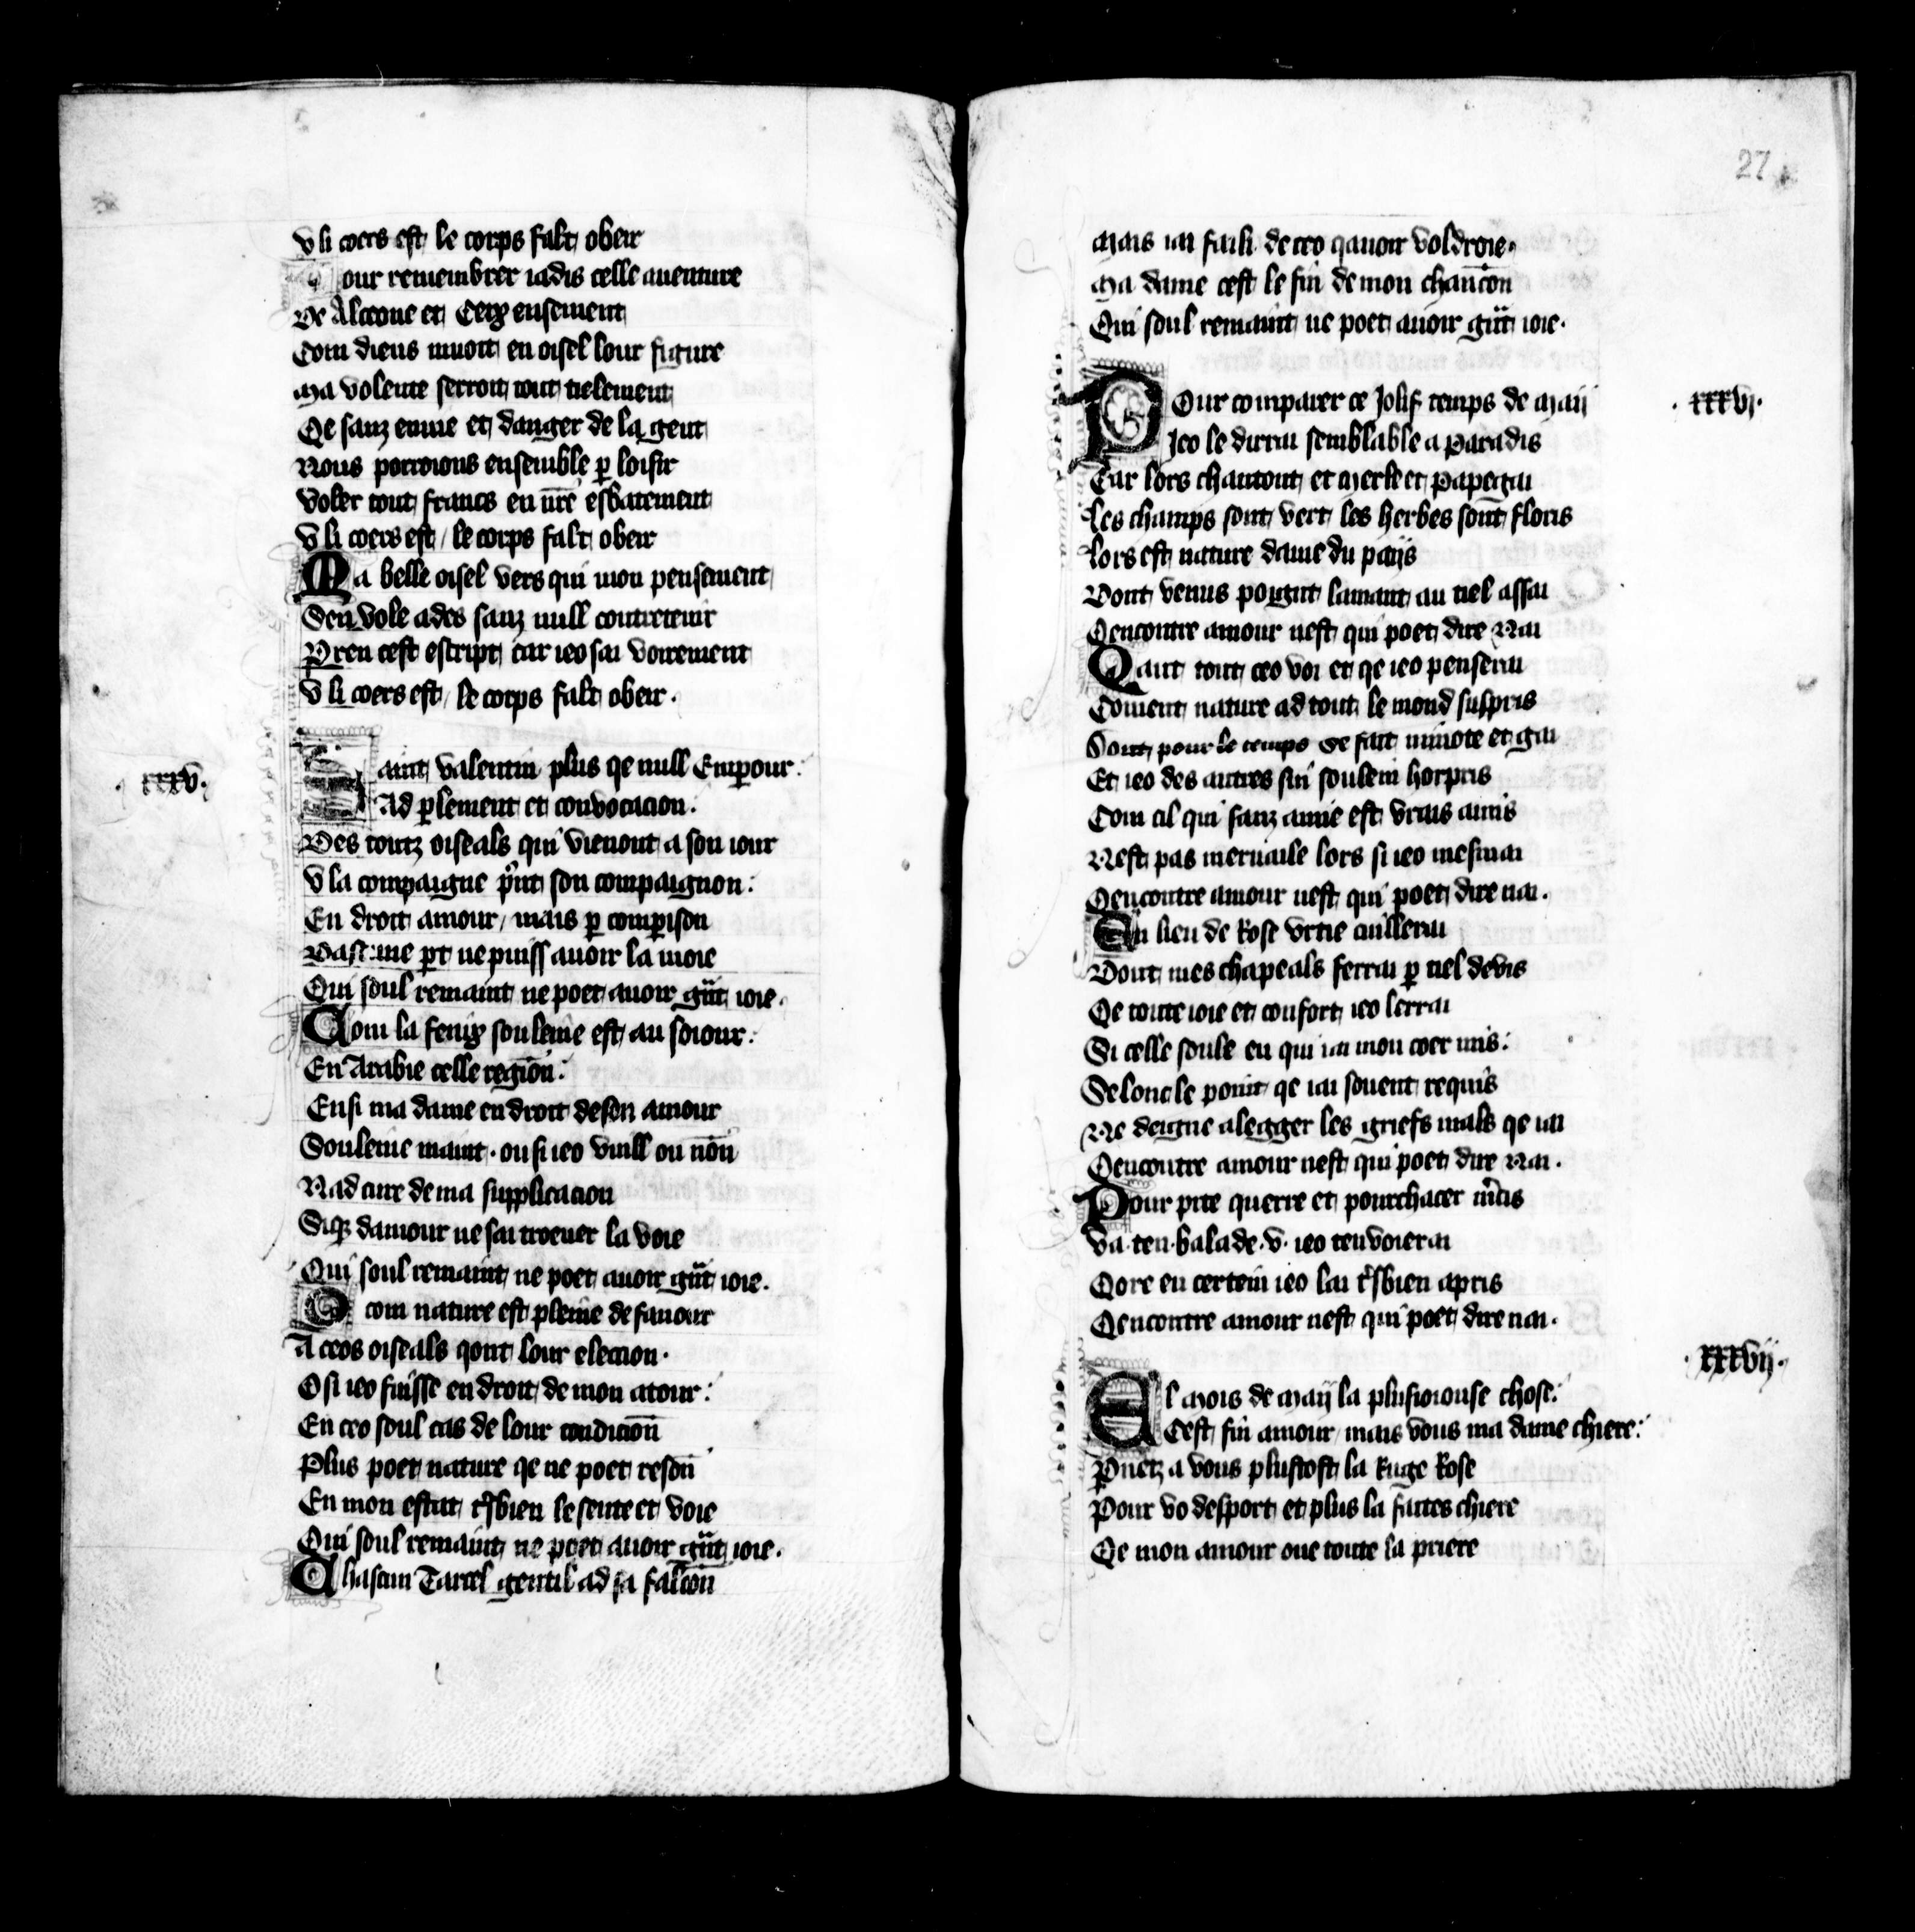 U li coers est le corps falt obeir
Pour remembrer iadis celle auenture
De Alceone et Ceix ensement
Com dieus muoit en oisel lour figure
Ma volente serroit tout tielement
Qe sanz enuie et danger de la gent
Nous porroions ensemble ꝑ loisir
Voler tout francs en nr̄e esbatement
U li coers est / le corps falt obeir
Ma belle oisel vers qui mon pensement
Sen vole ades sanz null contretenir
Pren cest escript car ieo sai voirement
U li coers est / le corps falt obeir·
·xxxv·
Saint valentin plus qe null Emꝑour:
Ad ꝑlement et convocacion:
Des toutz oiseals qui vienont a son iour
U la compaigne pͥnt son compaignon:
En droit amour / mais ꝑ comꝑison
Daſcune ꝑt ne puiss auoir la moie
Qui soul remaint ne poet auoir gͣnt ioie·
Com la fenix souleine est au soiour:
En Arabie celle region̄:
Ensi ma dame en droit de son amour
Souleine maint · ou si ieo vuill ou nōn
Nad cure de ma supplicacion
Siqꝫ damour ne sai troeuer la voie
Qui soul remaint ne poet auoir gͣnt ioie·
O com nature est pleine de fauour
A ceos oiseals qont lour eleccion·
O si ieo fuisse en droit de mon atour:
En ceo soul cas de lour condicion̄
Plus poet nature qe ne poet reson̄
En mon estat tͬsbien le sente et voie
Qui soul remaint ne poet auoir gͣnt ioie·
Chascun Tarcel gentil ad sa falcon̄
27
Mais iai faili de ceo qauoir voldroie·
Ma dame cest le fin de mon chancon̄
Qui soul remaint ne poet auoir gͣnt ioie·
·xxxvj·
POur comparer ce Jolif temps de Maij
Jeo le dirrai semblable a Paradis
Car lors chantont et Merle et Papegai
Les champs sont vert les herbes sont floris
Lors est nature dame du paijs
Dont venus poignt lamant au tiel assai
Qencontre amour nest qui poet dire Nai
Qant tout ceo voi et qe ieo penserai
Coment nature ad tout le mond suspris
Dont pour le temps se fait minote et gai
Et ieo des autres sui souleni horpris
Com cil qui sanz amie est vrais amis
Nest pas meruaile lors si ieo mesmai
Qencontre amour nest qui poet dire nai·
En lieu de Rose vrtie cuillerai
Dont mes chapeals ferrai ꝑ tiel devis
Qe toute ioie et confort ieo lerrai
Si celle soule en qui iai mon coer mis:
Selonc le point qe iai souent requis
Ne deigne alegger les griefs mals qe iai
Qencontre amour nest qui poet dire Nai·
Pour pite querre et pourchacer mͬcis
Va·ten·balade·v· ieo tenvoierai
Qore en certein ieo lai tͬsbien apris
Qencontre amour nest qui poet dire nai·
·xxxvij·
El Mois de Maij la plusioiouse chose:
Cest fin amour / mais vous ma dame chiere:
Pnetz a vous plustost la Ruge Rose
Pour vo desport et plus la faites chiere
Qe mon amour oue toute la priere